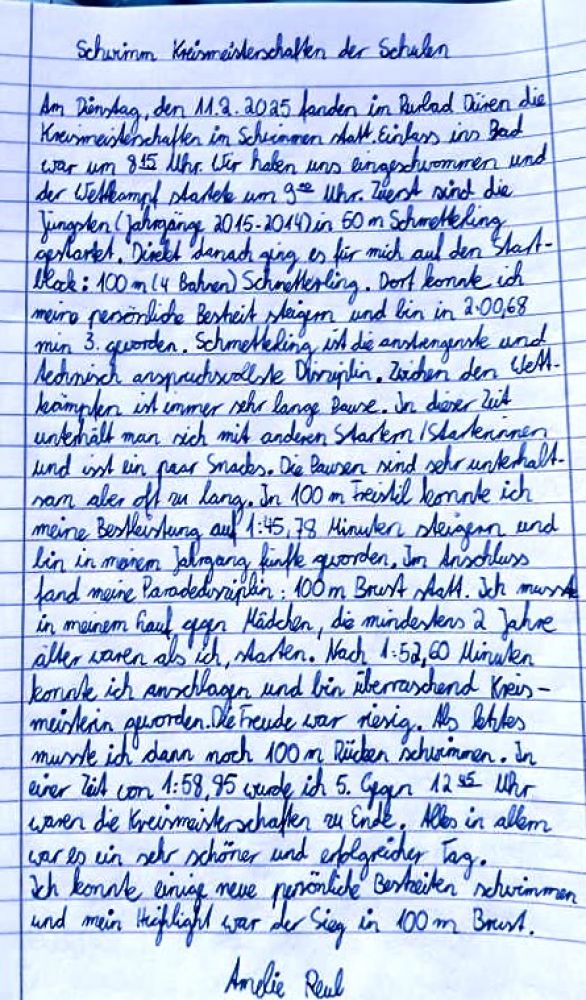 Schwimm Kreismeisterschaften der Schulen
Am Dienstag, den 11.2.2025 fanden im Rurbad Düren die
Kreismeisterschaften im Schwimmen statt. Einlass ins Bad
war um 8 15 Uhr. Wir haben uns eingeschwommen und
der Wettkampf startete um 9 00 Uhr. Zuerst sind die
Jüngsten (Jahrgänge 2015-2014) in 50 m Schmetterling
gestartet. Direkt danach ging es für mich auf den Start-
block: 100 m (4 Bahnen) Schmetterling. Dort konnte ich
meine persönliche Bestzeit steigern und bin in 2:00,68
min 3. geworden. Schmetterling ist die anstrengenste und
technisch anspruchsvollste Disziplin. Zwichen den Wett-
kämpfen ist immer sehr lange Pause. In dieser Zeit
unterhält man sich mit anderen Startern/Starterinnen
und isst ein paar Snacks. Die Pausen sind sehr unterhalt-
sam aber oft zu lang. In 100 m Freistil konnte ich
meine Bestleistung auf 1:45,78 Minuten steigern und
bin in meinem Jahrgang fünfte geworden. Im Anschluss
fand meine Paradedisziplin: 100 m Brust statt. Ich musste
in meinem Lauf gegen Mädchen, die mindestens 2 Jahre
älter waren als ich, starten. Nach 1:52,60 Minuten
konnte ich anschlagen und bin überraschend Kreis-
meisterin geworden. Die Freude war riesig. Als letztes
musste ich dann noch 100 m Rücken schwimmen. In
einer Zeit von 1:58,95 wurde ich 5. Gegen 12 45 Uhr
waren die Kreismeisterschaften zu Ende. Alles in allem
war es ein sehr schöner und erfolgreicher Tag.
Ich konnte einige neue persönliche Bestzeiten schwimmen
und mein Highlight war der Sieg in 100 m Brust.
Amelie Reul